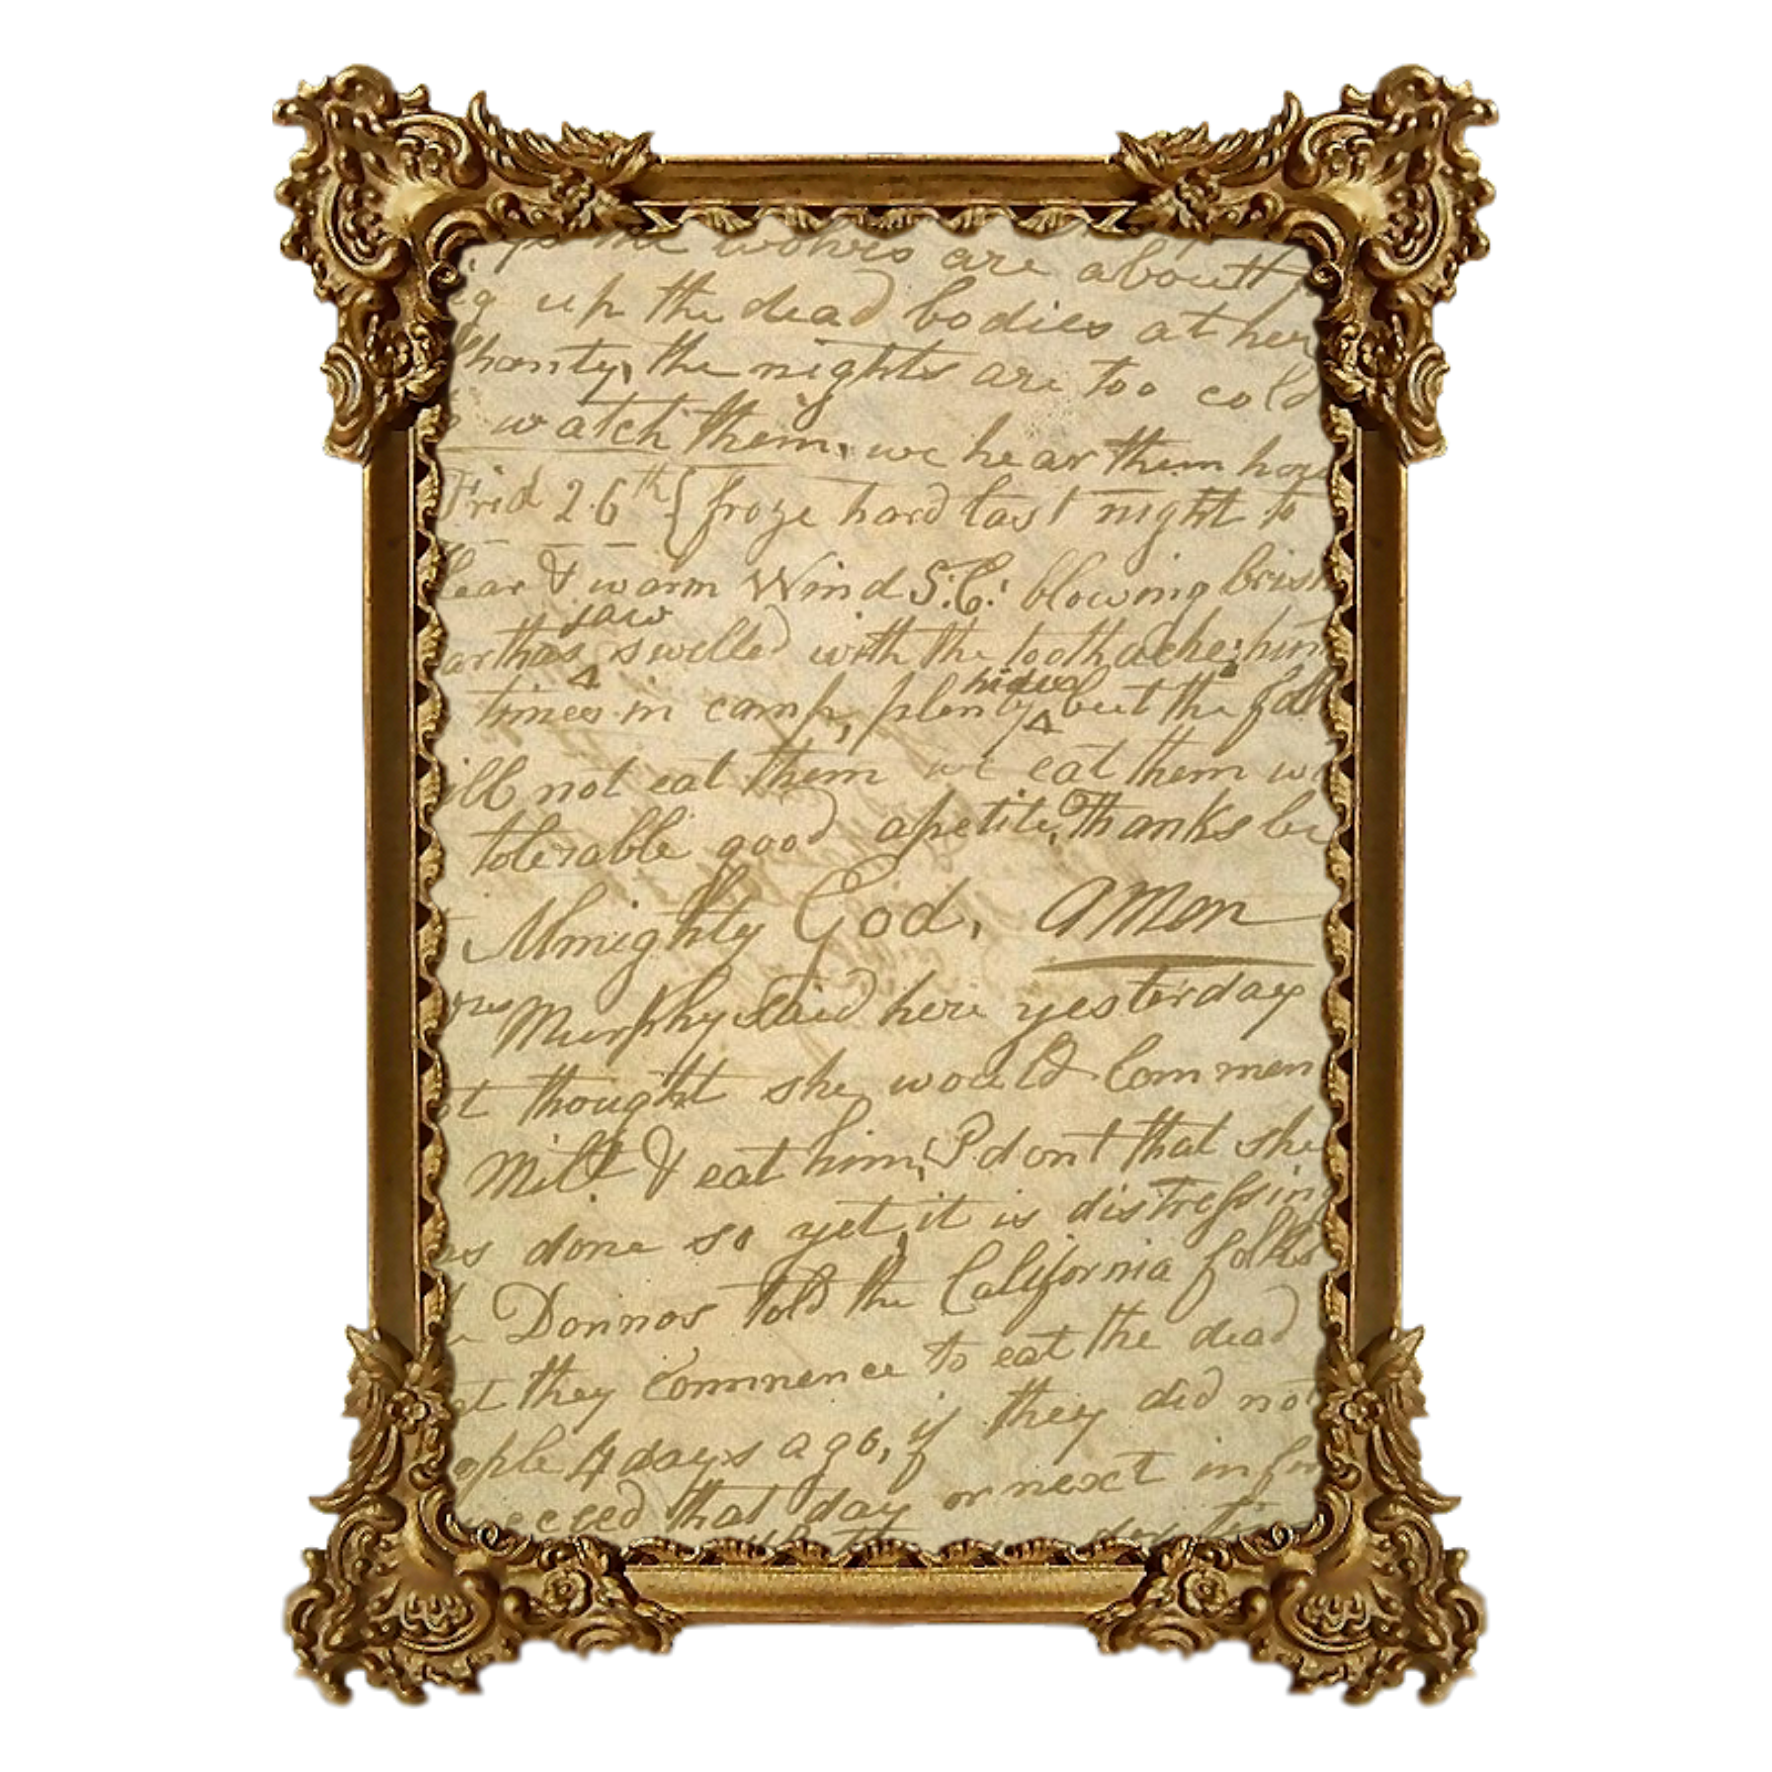 the wolves are about
up the dead bodies at her
Shanty, the nights are too cold
watch them, we hear them how
Frid 26th { froze hard last night to
lear & warm Wind S.E. blowing brisk
jaw
arthas swelled with the toothache; hun
hides
times in camp, plenty but the fol
ill not eat them we eat them wi
tolerable good apetite, Thanks be
Almighty God, Amen
Murphy said here yesterday
t thought she would Commen
Milt & eat him, I dont that she
s done so yet, it is distressing
Donnos told the California folks
t they commence to eat the dead
ople 4 days ago, if they did not
ucceed that day or next in fin